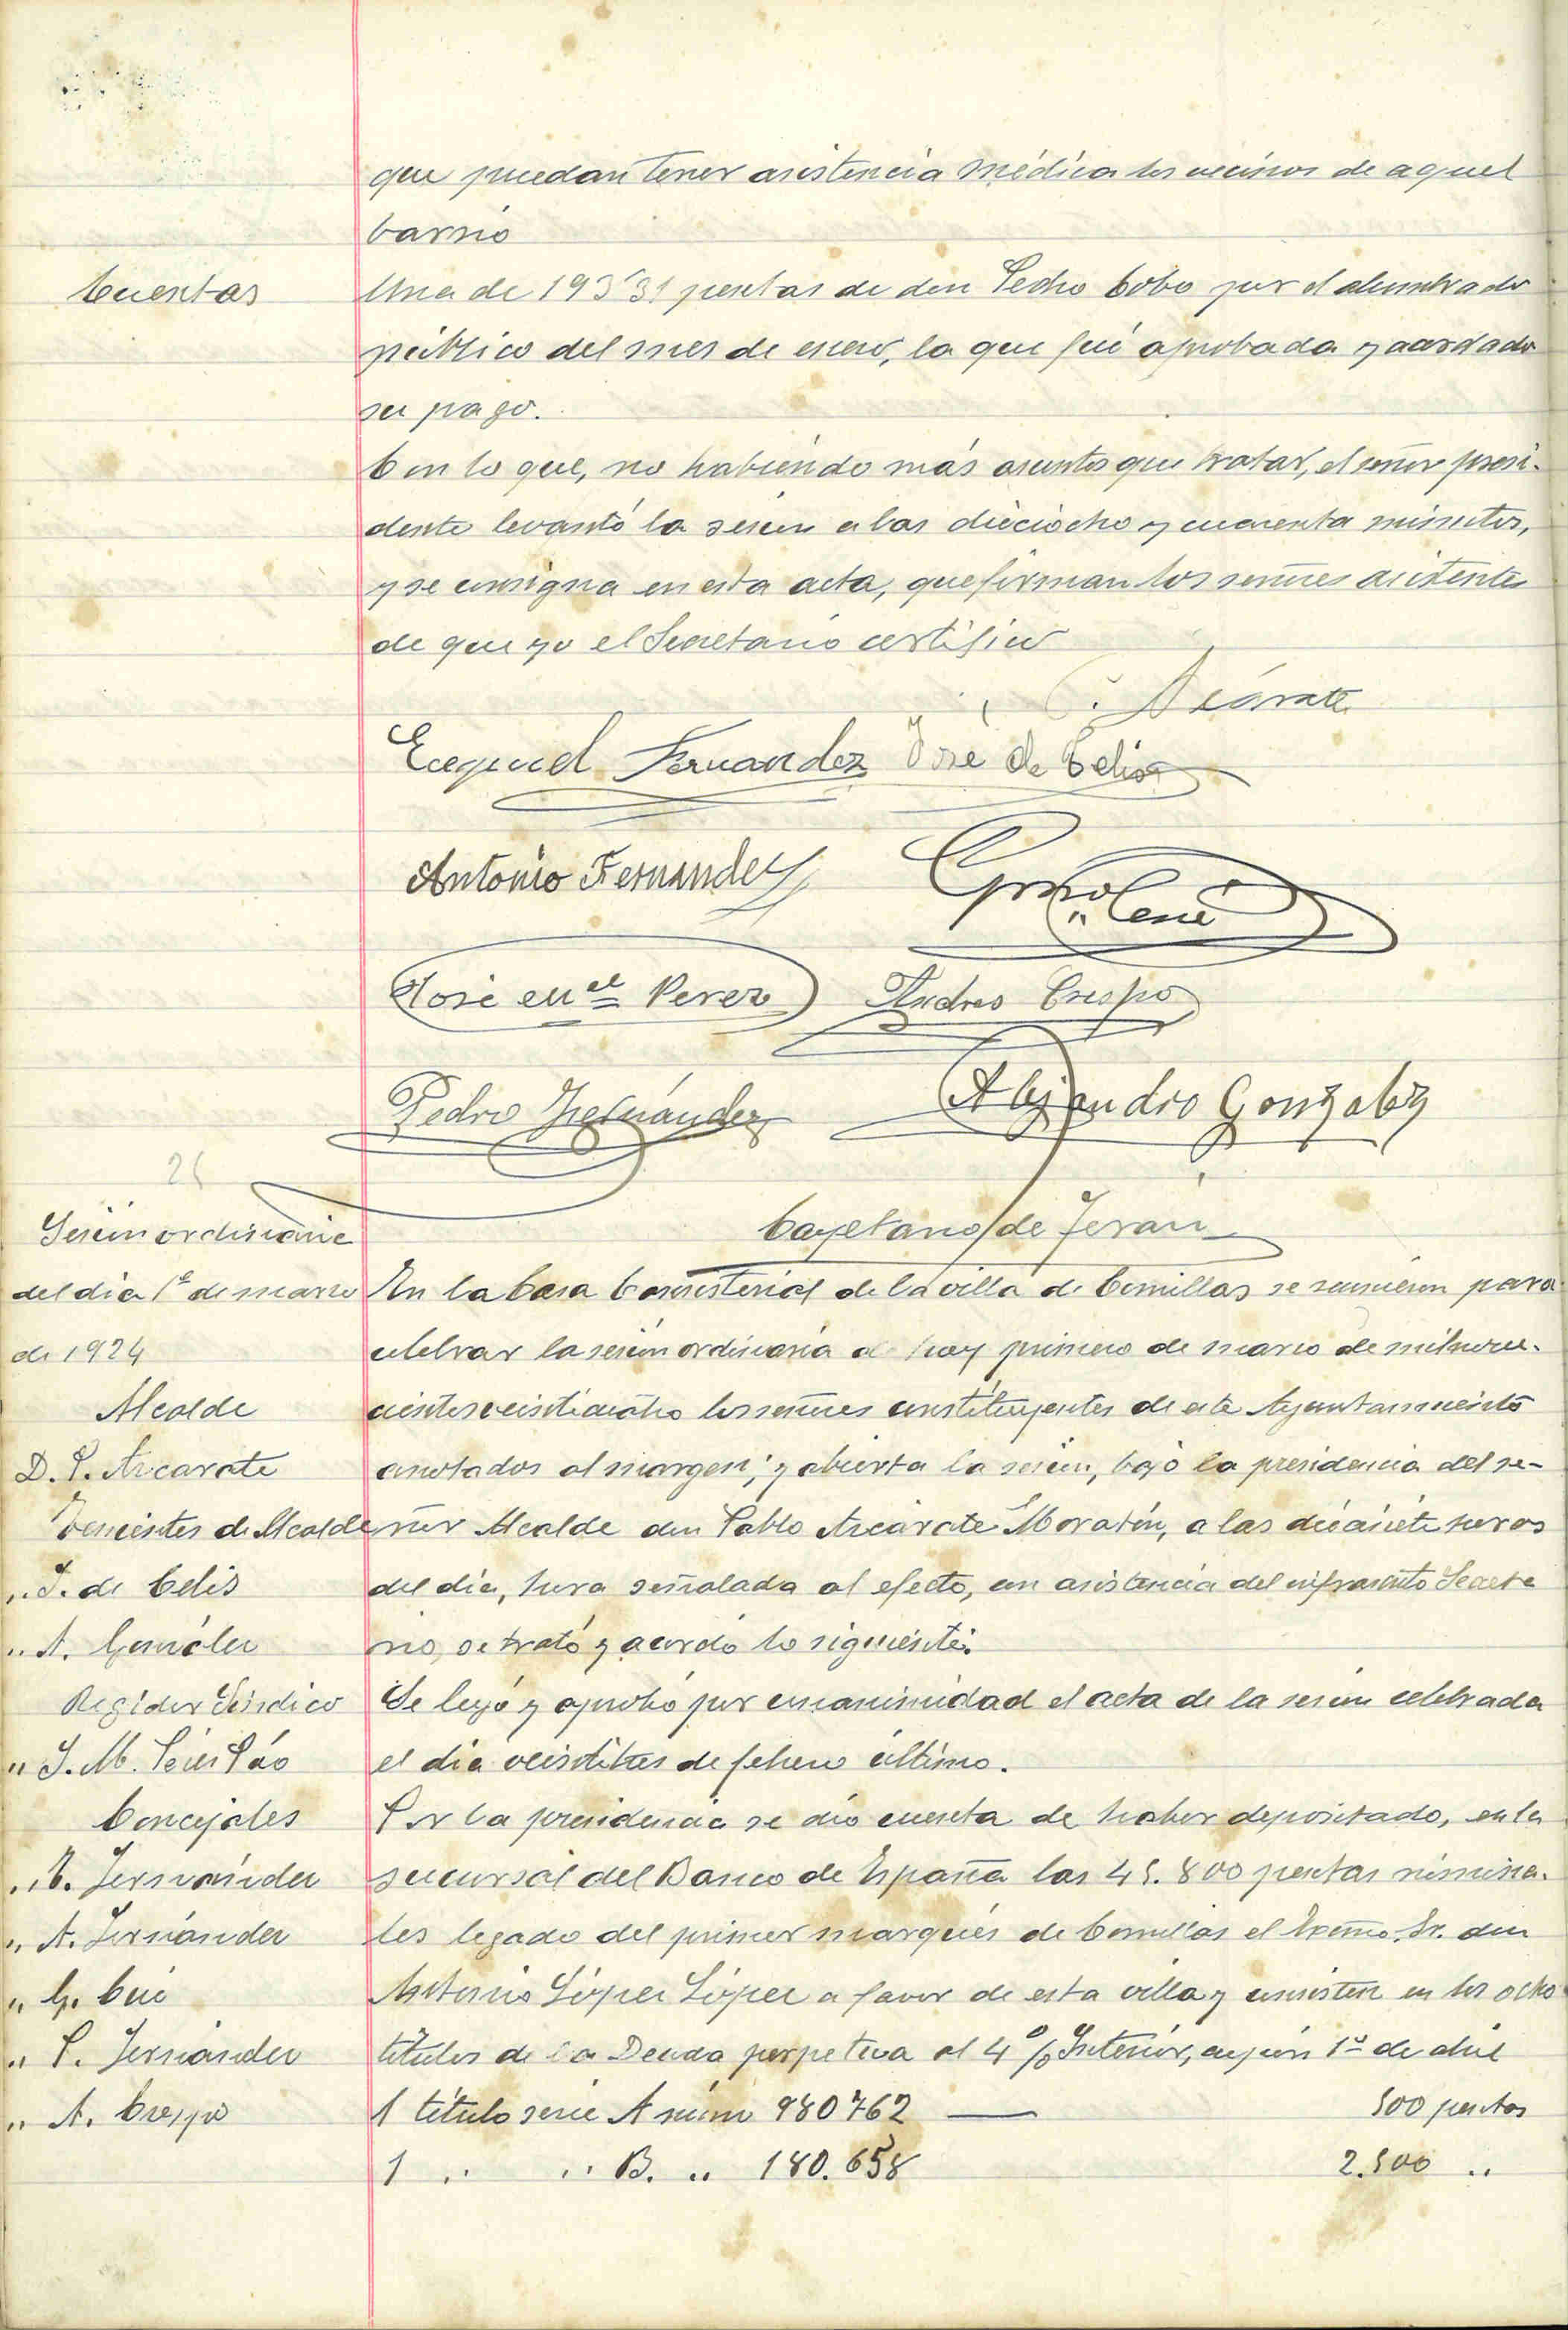 que puedan tener asistencia médica los vecinos de aquel
barrio
Cuentas
Una de 195'31 pesetas de don Pedro Cobo por el alumbrado
público del mes de enero, la que fué aprobada y acordado
su pago.
Con lo que, no habiendo más asuntos que tratar, el señor presi-
dente levantó la sesion a las dieciocho y cuarenta minutos,
y se consigna en esta acta, que firman los señores asistentes
de que yo el Secretario certifico
P. Azcárate
Ezequiel Fernandez José de Celis
Antonio Fernandez
G Cené
José Mel Perez Andres Crespo
Pedro Fernández Alejandro Gonzalez
26
Cayetano de Terán
Sesion ordinaria
del dia 1º de marzo
de 1924
Alcalde
D. P. Azcarate
Tenientes de Alcalde
" J. de Celis
" A. González
Regidor Síndico
" J. M. Pérez
Concejales
" E. Fernández
" A. Fernández
" G. Cué
" P. Fernández
" A. Crespo
En la Casa Consistorial de la villa de Comillas se reunieron para
celebrar la sesion ordinaria de hoy primero de marzo de mil nove-
cientos veinticuatro los señores constituyentes de este Ayuntamiento
anotados al margen; y abierta la sesion, bajo la presidencia del se-
ñor Alcalde don Pablo Azcárate Moratín, a las diecisiete horas
del dia, hora señalada al efecto, con asistencia del infrascrito Secreta
rio, se trató y acordó lo siguiente:
Se leyó y aprobó por unanimidad el acta de la sesion celebrada
el dia veintitres de febrero último.
Por la presidencia se dio cuenta de haber depositado, en la
sucursal del Banco de España las 45.800 pesetas nomina-
les legado del primer marqués de Comillas el Excmo. Sr. don
Antonio López López a favor de esta villa y consisten en los ocho
títulos de la Deuda perpetua al 4% Interior, cupón 1º de abril
1 título serie A núm 980762 — 500 pesetas
1 " " B. " 180.658 2.500 "